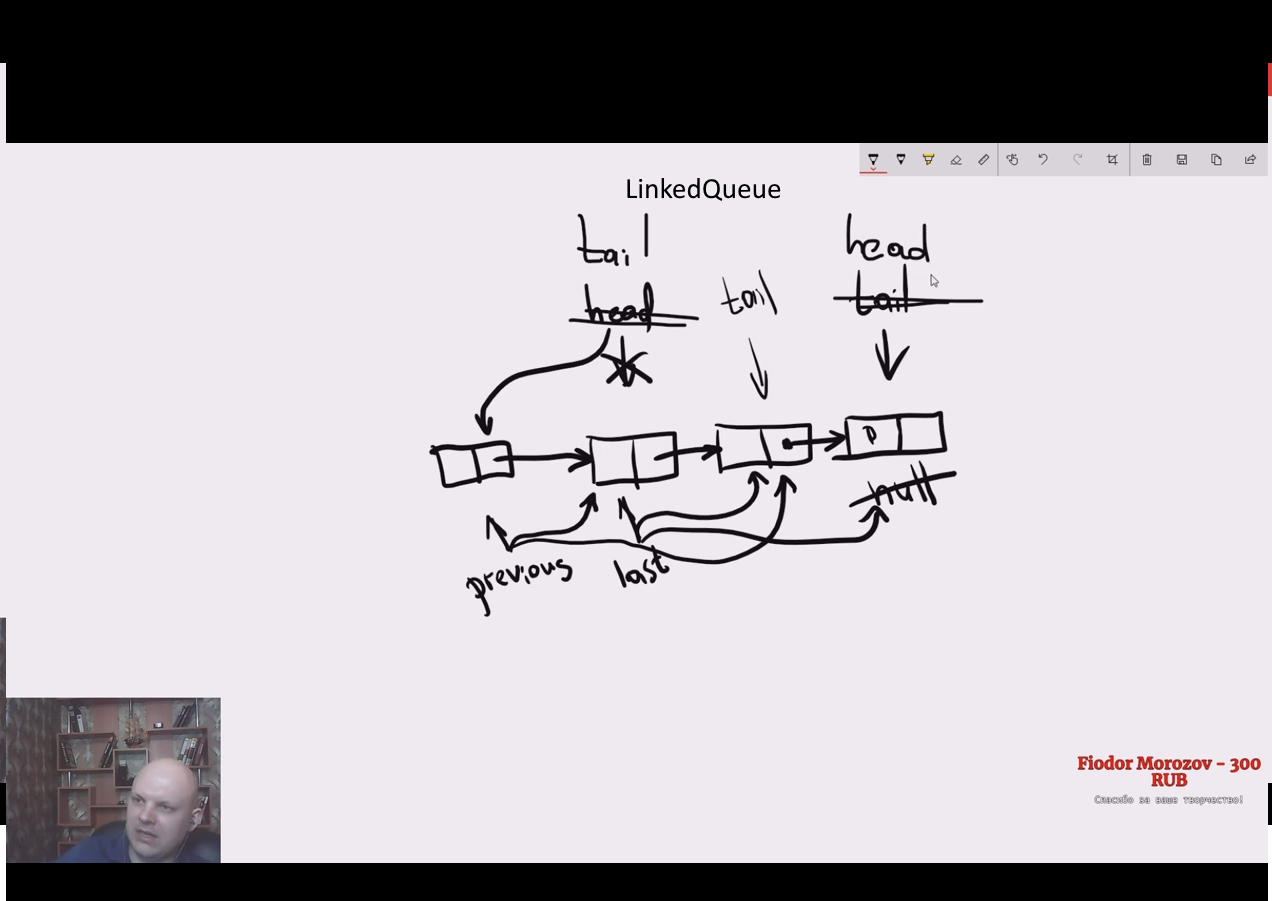 LinkedQueue
tail
head
head
tail
tail
D
null
previous
last
Fiodor Morozov - 300
RUB
Спасибо за ваше творчество!